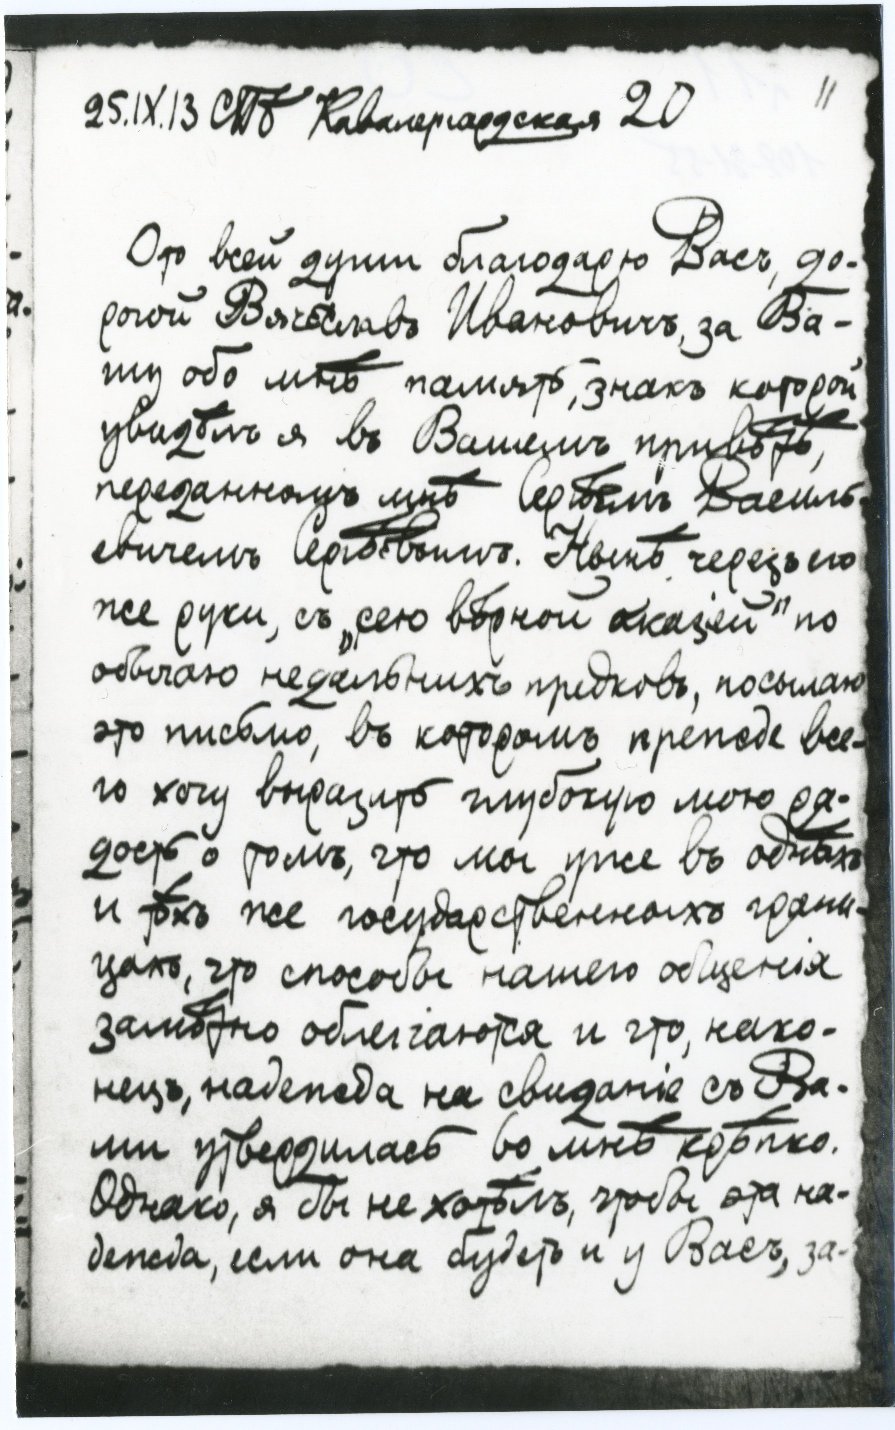 25.IX.13 СПБ Кавалергардская 20
11
Отъ всей души благодарю Васъ, до-
рогой Вячеславъ Ивановичъ, за Ва-
шу обо мнѣ память, знакъ которой
увидѣлъ я въ Вашемъ привѣтѣ,
переданномъ мнѣ Сергѣемъ Василь-
евичемъ Сергѣевымъ. Нынѣ черезъ его
же руки, съ „сею вѣрной оказіей" по
обычаю недальнихъ предковъ, посылаю
это письмо, въ которомъ прежде все-
го хочу выразить глубокую мою ра-
дость о томъ, что мы уже въ однѣхъ
и тѣхъ же государственныхъ грани-
цахъ, что способы нашего общенія
замѣтно облегчаются и что, нако-
нецъ, надежда на свиданіе съ Ва-
ми утвердилась во мнѣ крѣпко.
Однако, я бы не хотѣлъ, чтобы эта на-
дежда, если она будетъ и у Васъ, за-